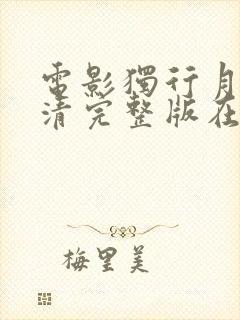 電影獨行月
清完整版在
梅里美